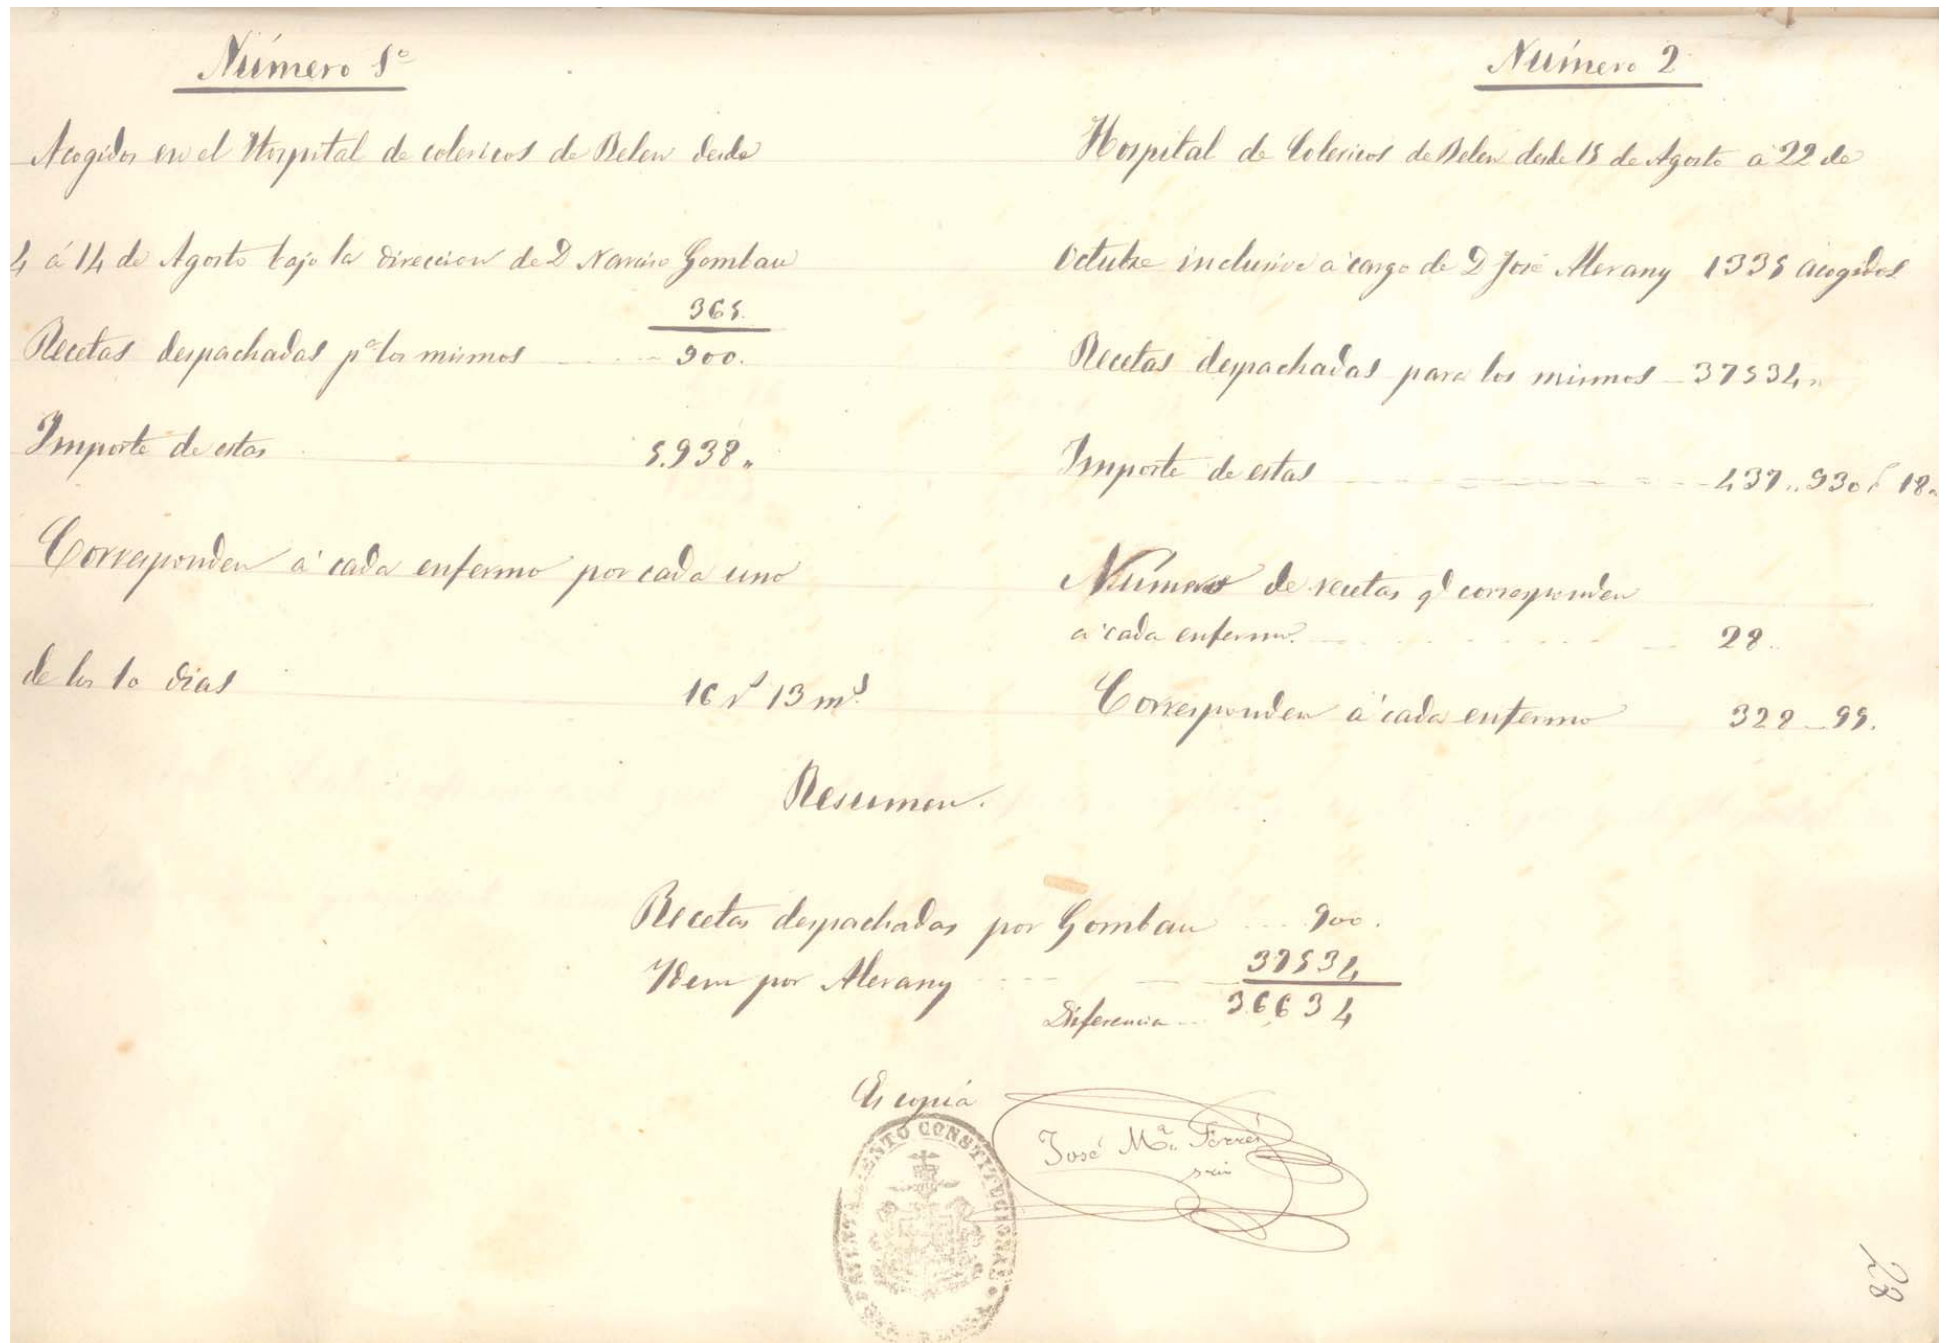 Número 1º
Acogidos en el Hospital de colericos de Belen desde
4 á 14 de Agosto bajo la direccion de D Narciso Gombau
365.
Recetas despachadas pª los mismos 900.
Importe de estas 5.938 "
Corresponden á cada enfermo por cada uno
de los 10 dias 16 rs 13 ms
Número 2
Hospital de Colericos de Belen desde 15 de Agosto á 22 de
Octubre inclusive á cargo de D José Alerany 1335 acogidos
Recetas despachadas para los mismos 37534 "
Importe de estas 437..930 18
Número de recetas qe corresponden
á cada enfermo. 28.
Corresponden á cada enfermo 328 - 95.
Resumen.
Recetas despachadas por Gombau 900.
Idem por Alerany 37534
Diferencia 36634
Es copia
José Mª Ferrer
srio
CONSTITUCIONAL
28